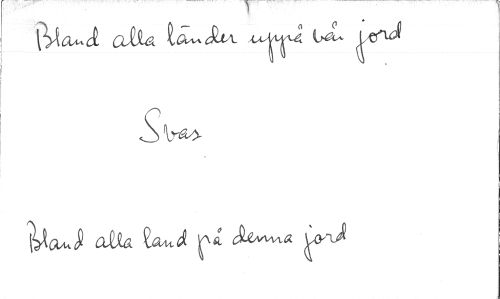 Bland alla länder uppå vår jord
Svar
Bland alla land på denna jord